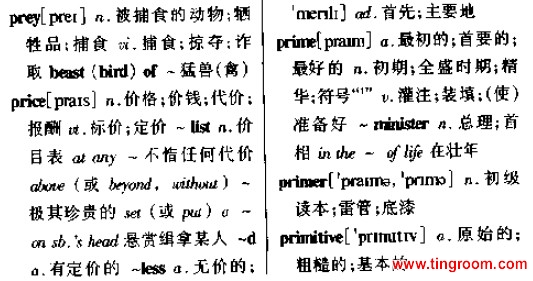 prey[preɪ] n.被捕食的动物;牺
牲品;捕食 vi.捕食;掠夺;诈
取 beast (bird) of ~猛兽(禽)
price[praɪs] n.价格;价钱;代价;
报酬 vt.标价;定价 ~ list n.价
目表 at any ~ 不惜任何代价
above (或 beyond, without) ~
极其珍贵的 set (或 put) a ~
on sb.'s head 悬赏缉拿某人 ~d
a.有定价的 ~less a.无价的;
ˈmerɪlɪ] ad.首先;主要地
prime[praɪm] a.最初的;首要的;
最好的 n.初期;全盛时期;精
华;符号“′” v.灌注;装填;(使)
准备好 ~ minister n.总理;首
相 in the ~ of life 在壮年
primer['praɪmə, 'prɪmə] n.初级
读本;雷管;底漆
primitive['prɪmɪtɪv] a.原始的;
粗糙的;基本的
www.tingroom.com